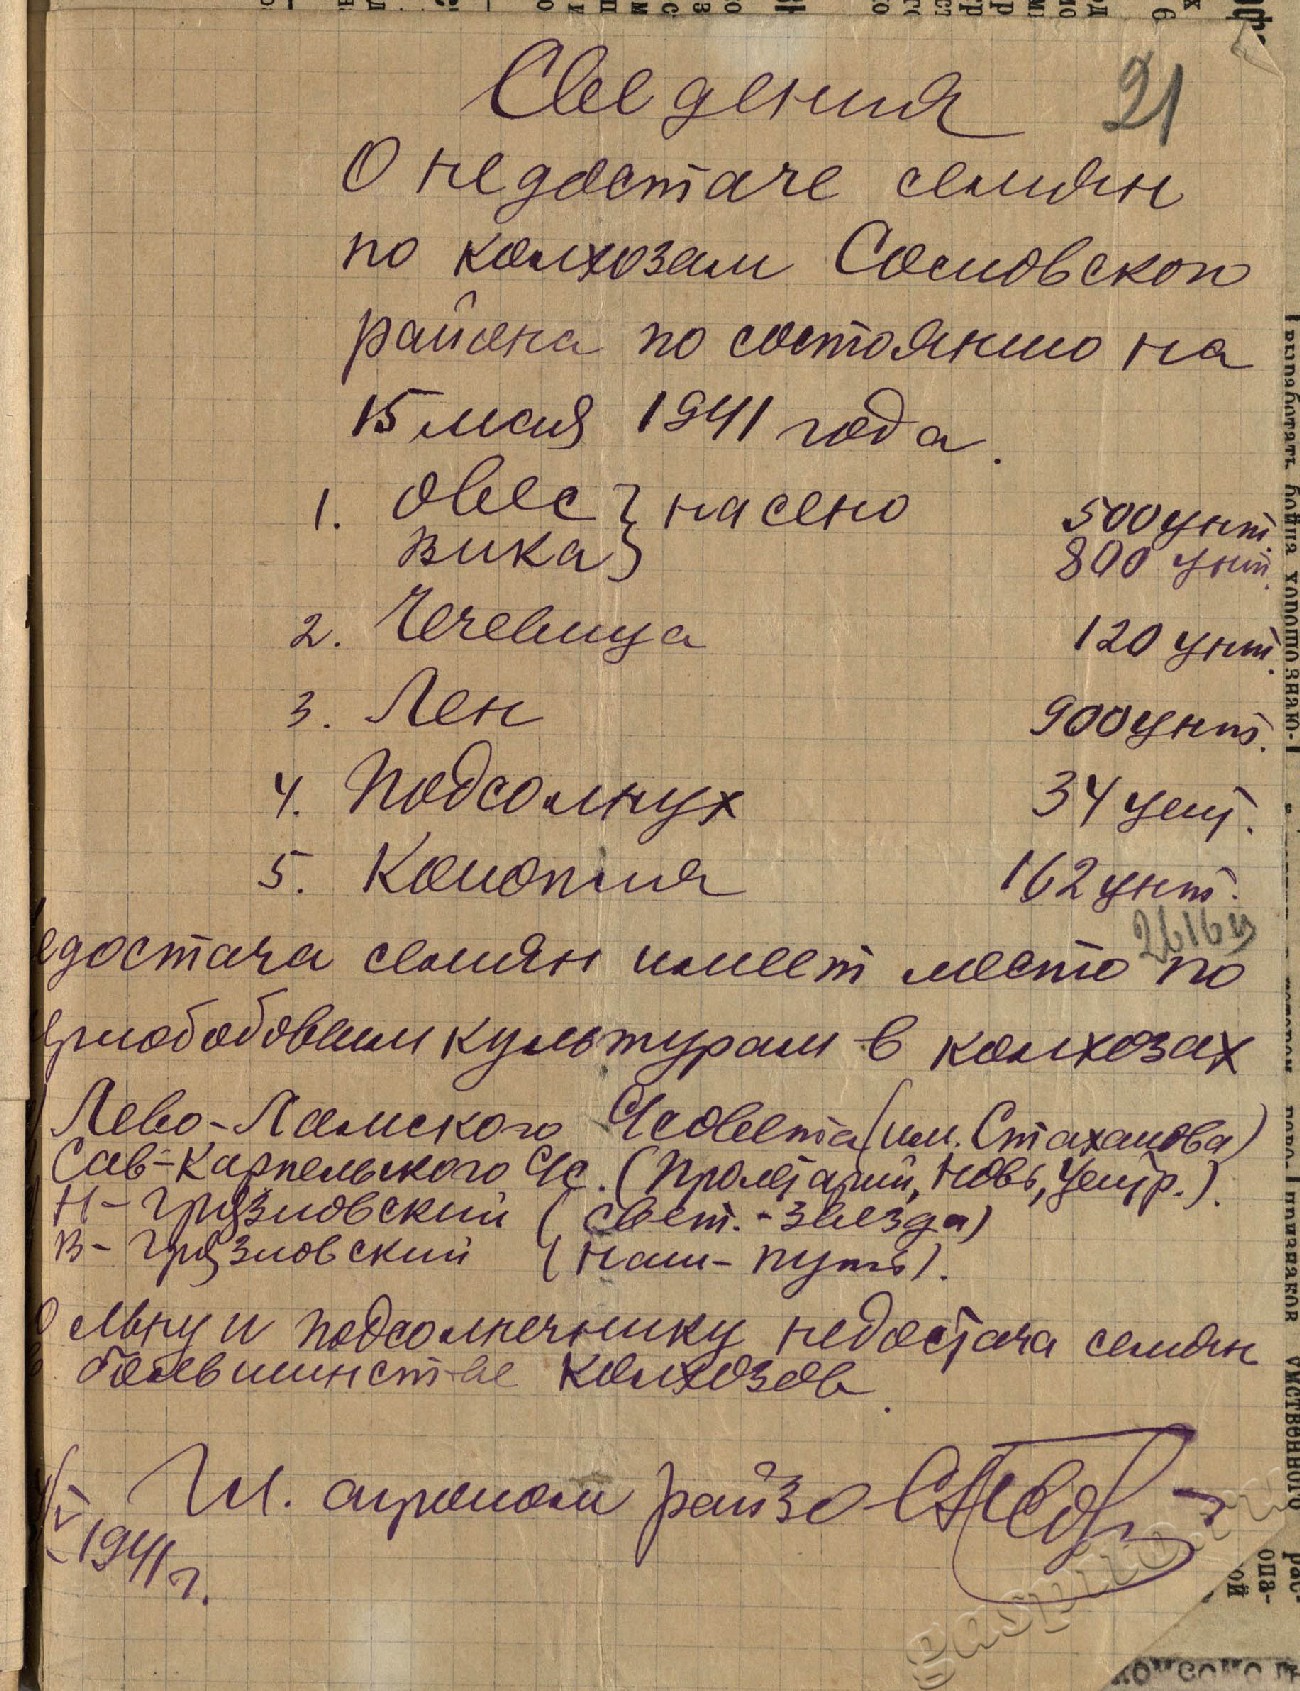 21
Сведения
О недостаче семян
по колхозам Сосновского
района по состоянию на
15 мая 1941 года.
1. Овес } на сено 500 цнт.
вика } 800 цнт.
2. Чечевица 120 цнт.
3. Лен 900 цнт.
4. Подсолнух 34 цент.
5. Конопля 162 цнт.
2616 ц
едостача семян имеет место по
ернобобовым культурам в колхозах
Лево-Ламского С/совета (им. Стаханова)
Сав-Карпельского С/с. (Пролетарий, Новь, Центр.).
Н-Грязновский (Свет. - Звезда)
В-Грязновский (Наш-путь).
о льну и подсолнечнику недостача семян
большинстве колхозов.
Гл. агроном райзо
V 1941 г.
gaspito.ru